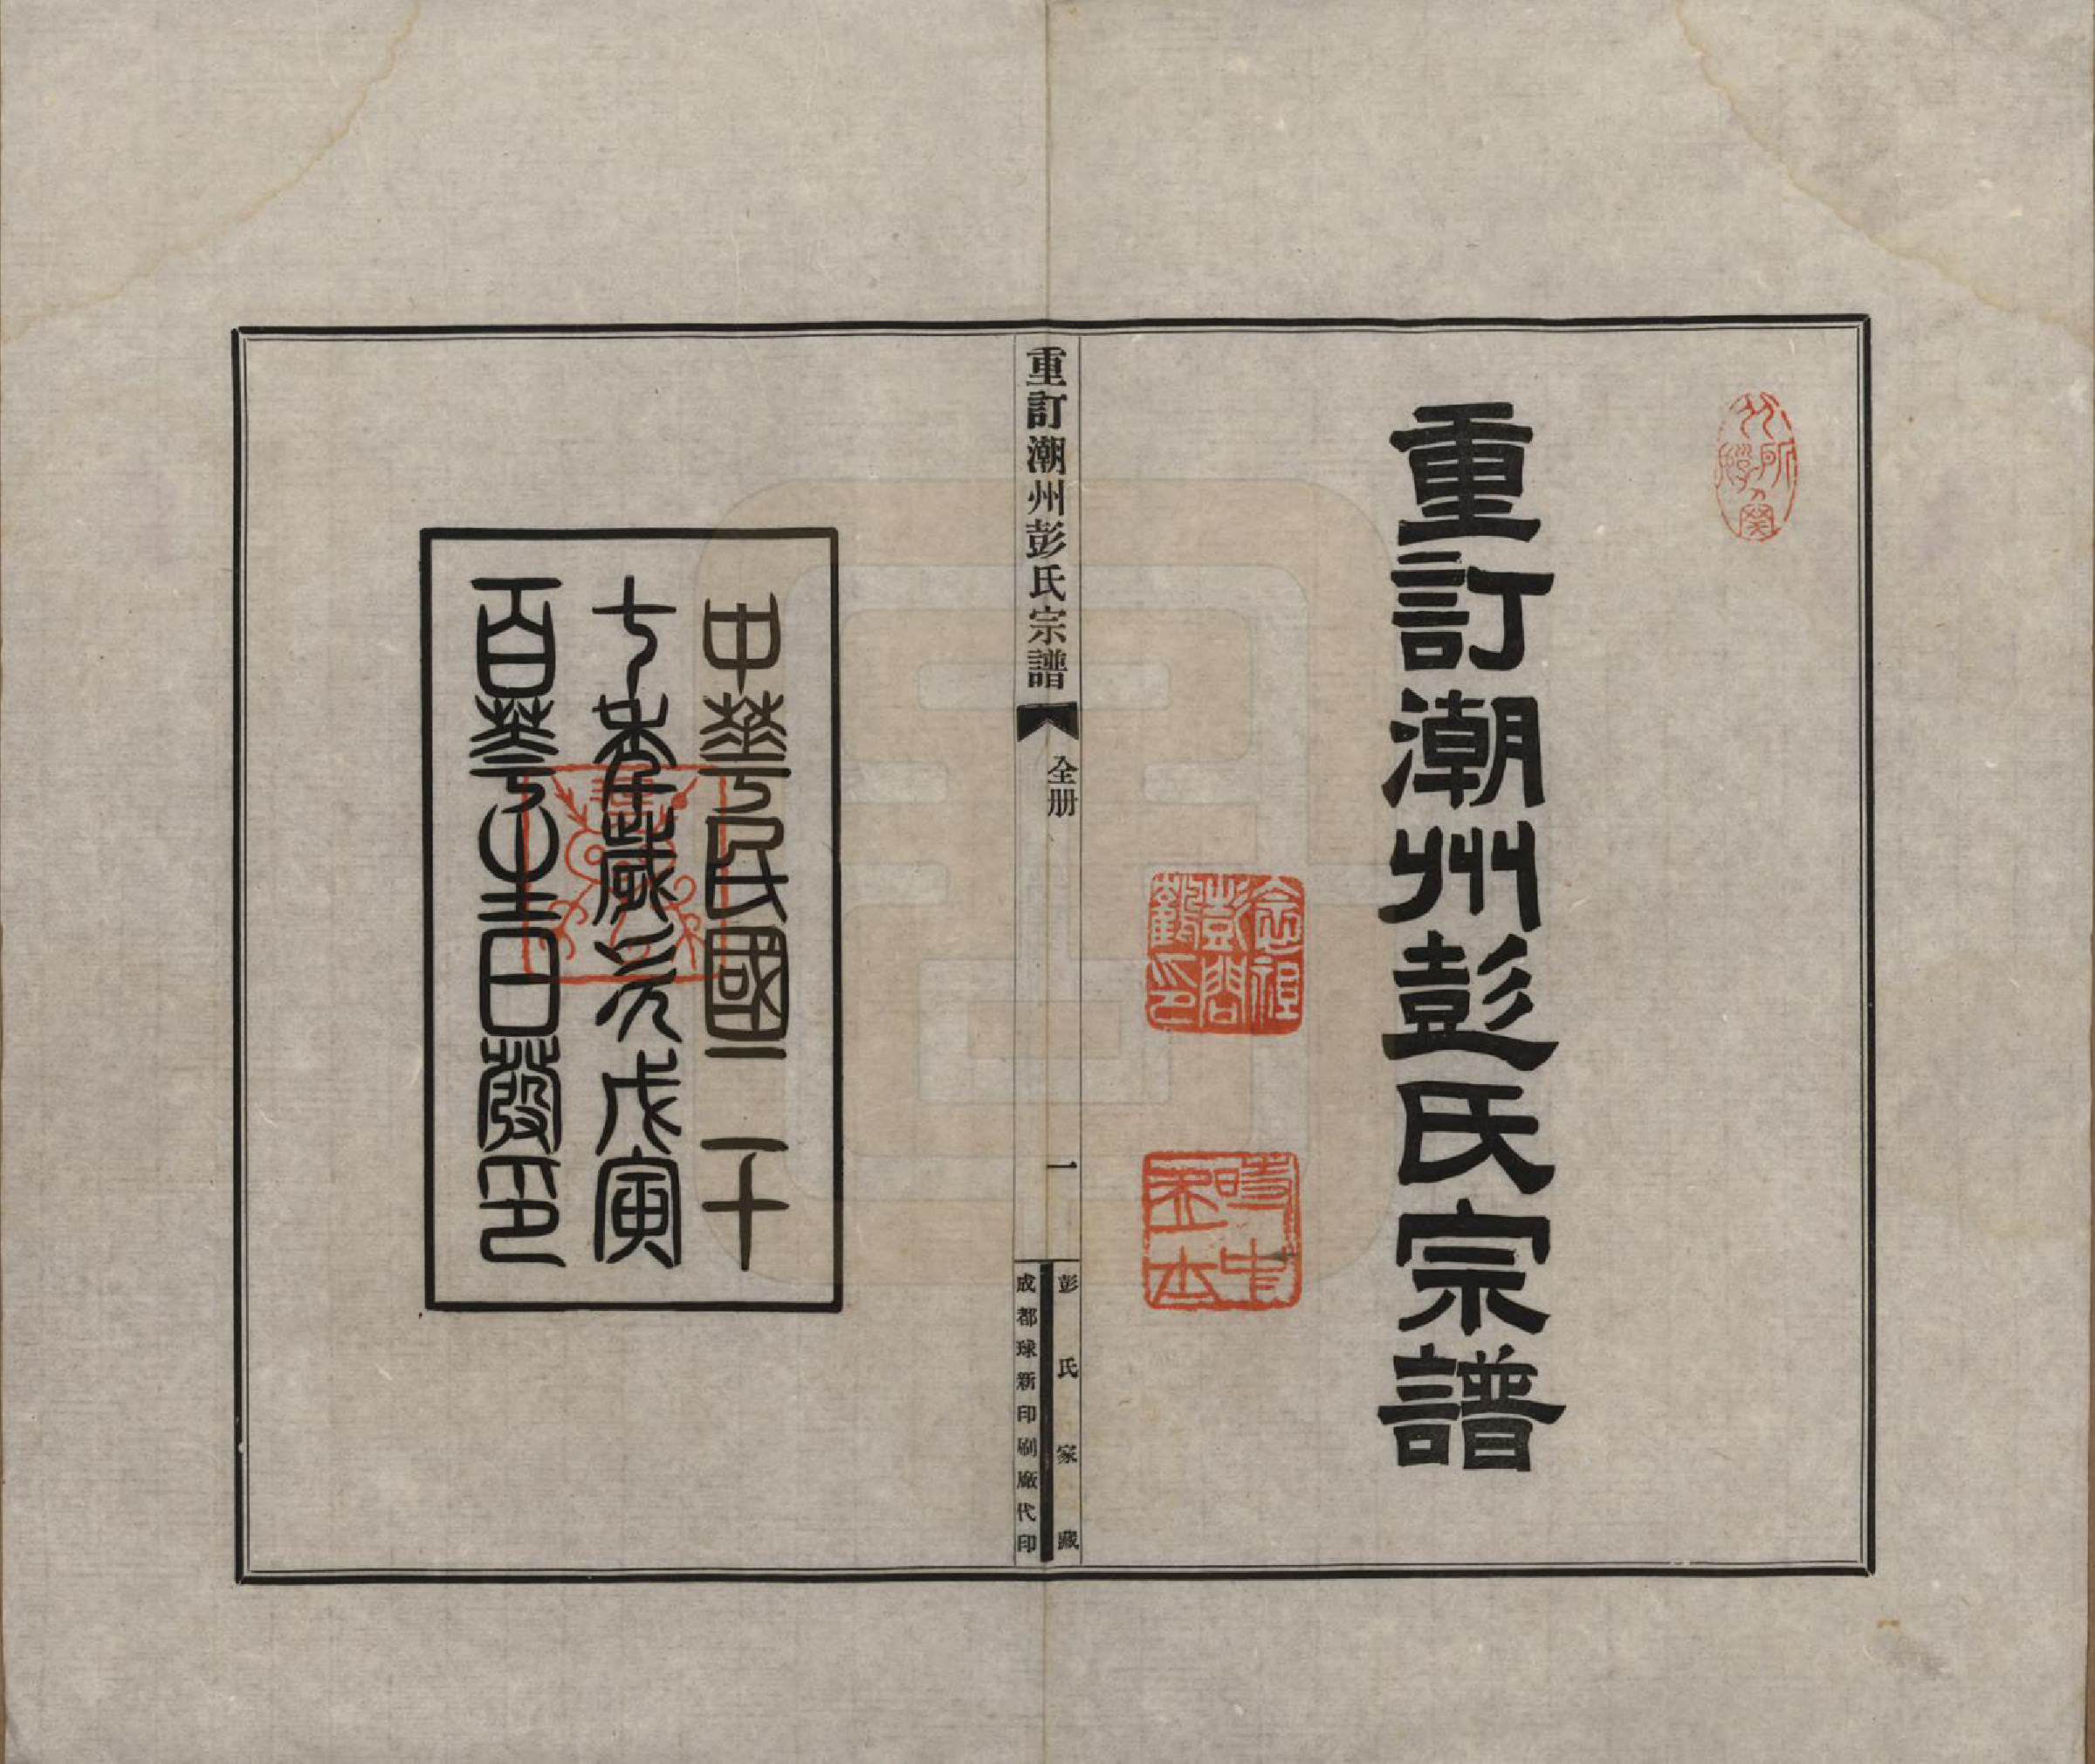 重訂潮州彭氏宗譜
重訂潮州彭氏宗譜
全册
一
彭氏家藏
成都球新印刷廠代印
中華民國二十
七年歲次戊寅
百華生日發印